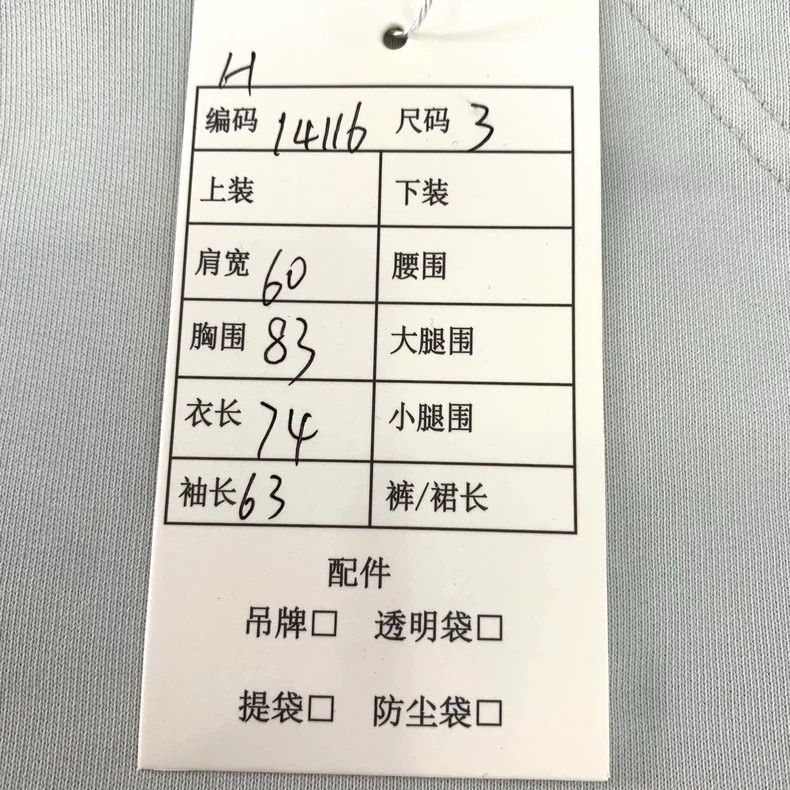 H
编码 14116 尺码 3
上装 下装
肩宽 60 腰围
胸围 83 大腿围
衣长 74 小腿围
袖长 63 裤/裙长
配件
吊牌□ 透明袋□
提袋□ 防尘袋□